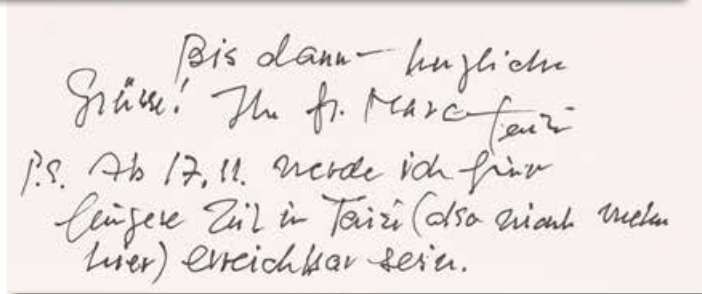 Bis dann – herzliche
Grüsse! Ihr fr. Marc
P.S. Ab 17.11. werde ich für
längere Zeit in Taizé (also nicht mehr
hier) erreichbar sein.